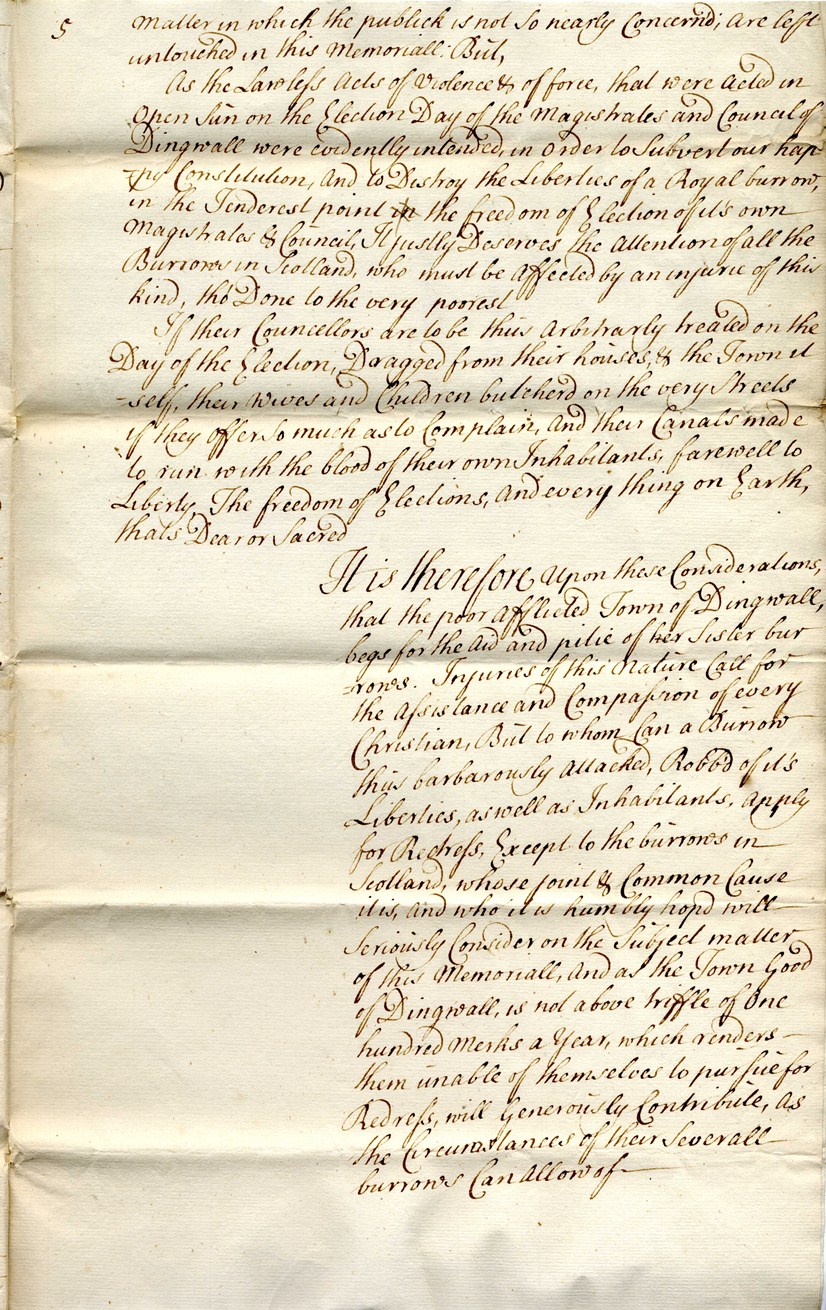 5
matter in which the publick is not so nearly Concern'd; are left
untouched in this Memoriall: But,
As the Lawless Acts of Violence & of force, that were acted in
Open Sun on the Election Day of the Magistrates and Council of
Dingwall were evidently intended, in order to Subvert our hap-
-py Constitution, And to Destroy the Liberties of a Royal burrow,
in the Tenderest point the freedom of Election of it's own
Magistrates & Council, It justly Deserves the Attention of all the
Burrows in Scotland, who must be affected by an injurie of this
kind, tho' Done to the very poorest
If their Councellors are to be thus Arbitrarly treated on the
Day of the Election, Dragged from their houses, & the Town it
-self, their wives and Children butcherd on the very Streets
if they offer so much as to Complain, And their Canals made
to run with the blood of their own Inhabitants, farewell to
Liberty, The freedom of Elections, And every thing on Earth,
thats Dear or Sacred
It is therefore upon these Considerations,
that the poor afflicted Town of Dingwall,
begs for the Aid and pitie of her Sister bur
-rows. Injuries of this nature Call for
the Assistance and Compassion of every
Christian, But to whom Can a Burrow
thus barbarously attacked, Robb'd of it's
Liberties, as well as Inhabitants, apply
for Redress, Except to the burrows in
Scotland, whose joint & Common Cause
it is, And who it is humbly hop'd will
seriously Consider on the Subject matter
of this Memoriall, And as the Town Good
of Dingwall, is not above triffle of One
hundred Merks a Year, which renders
them unable of themselves to pursue for
Redress, will Generously Contribute, as
the Circumstances of their Severall
burrows Can Allow of